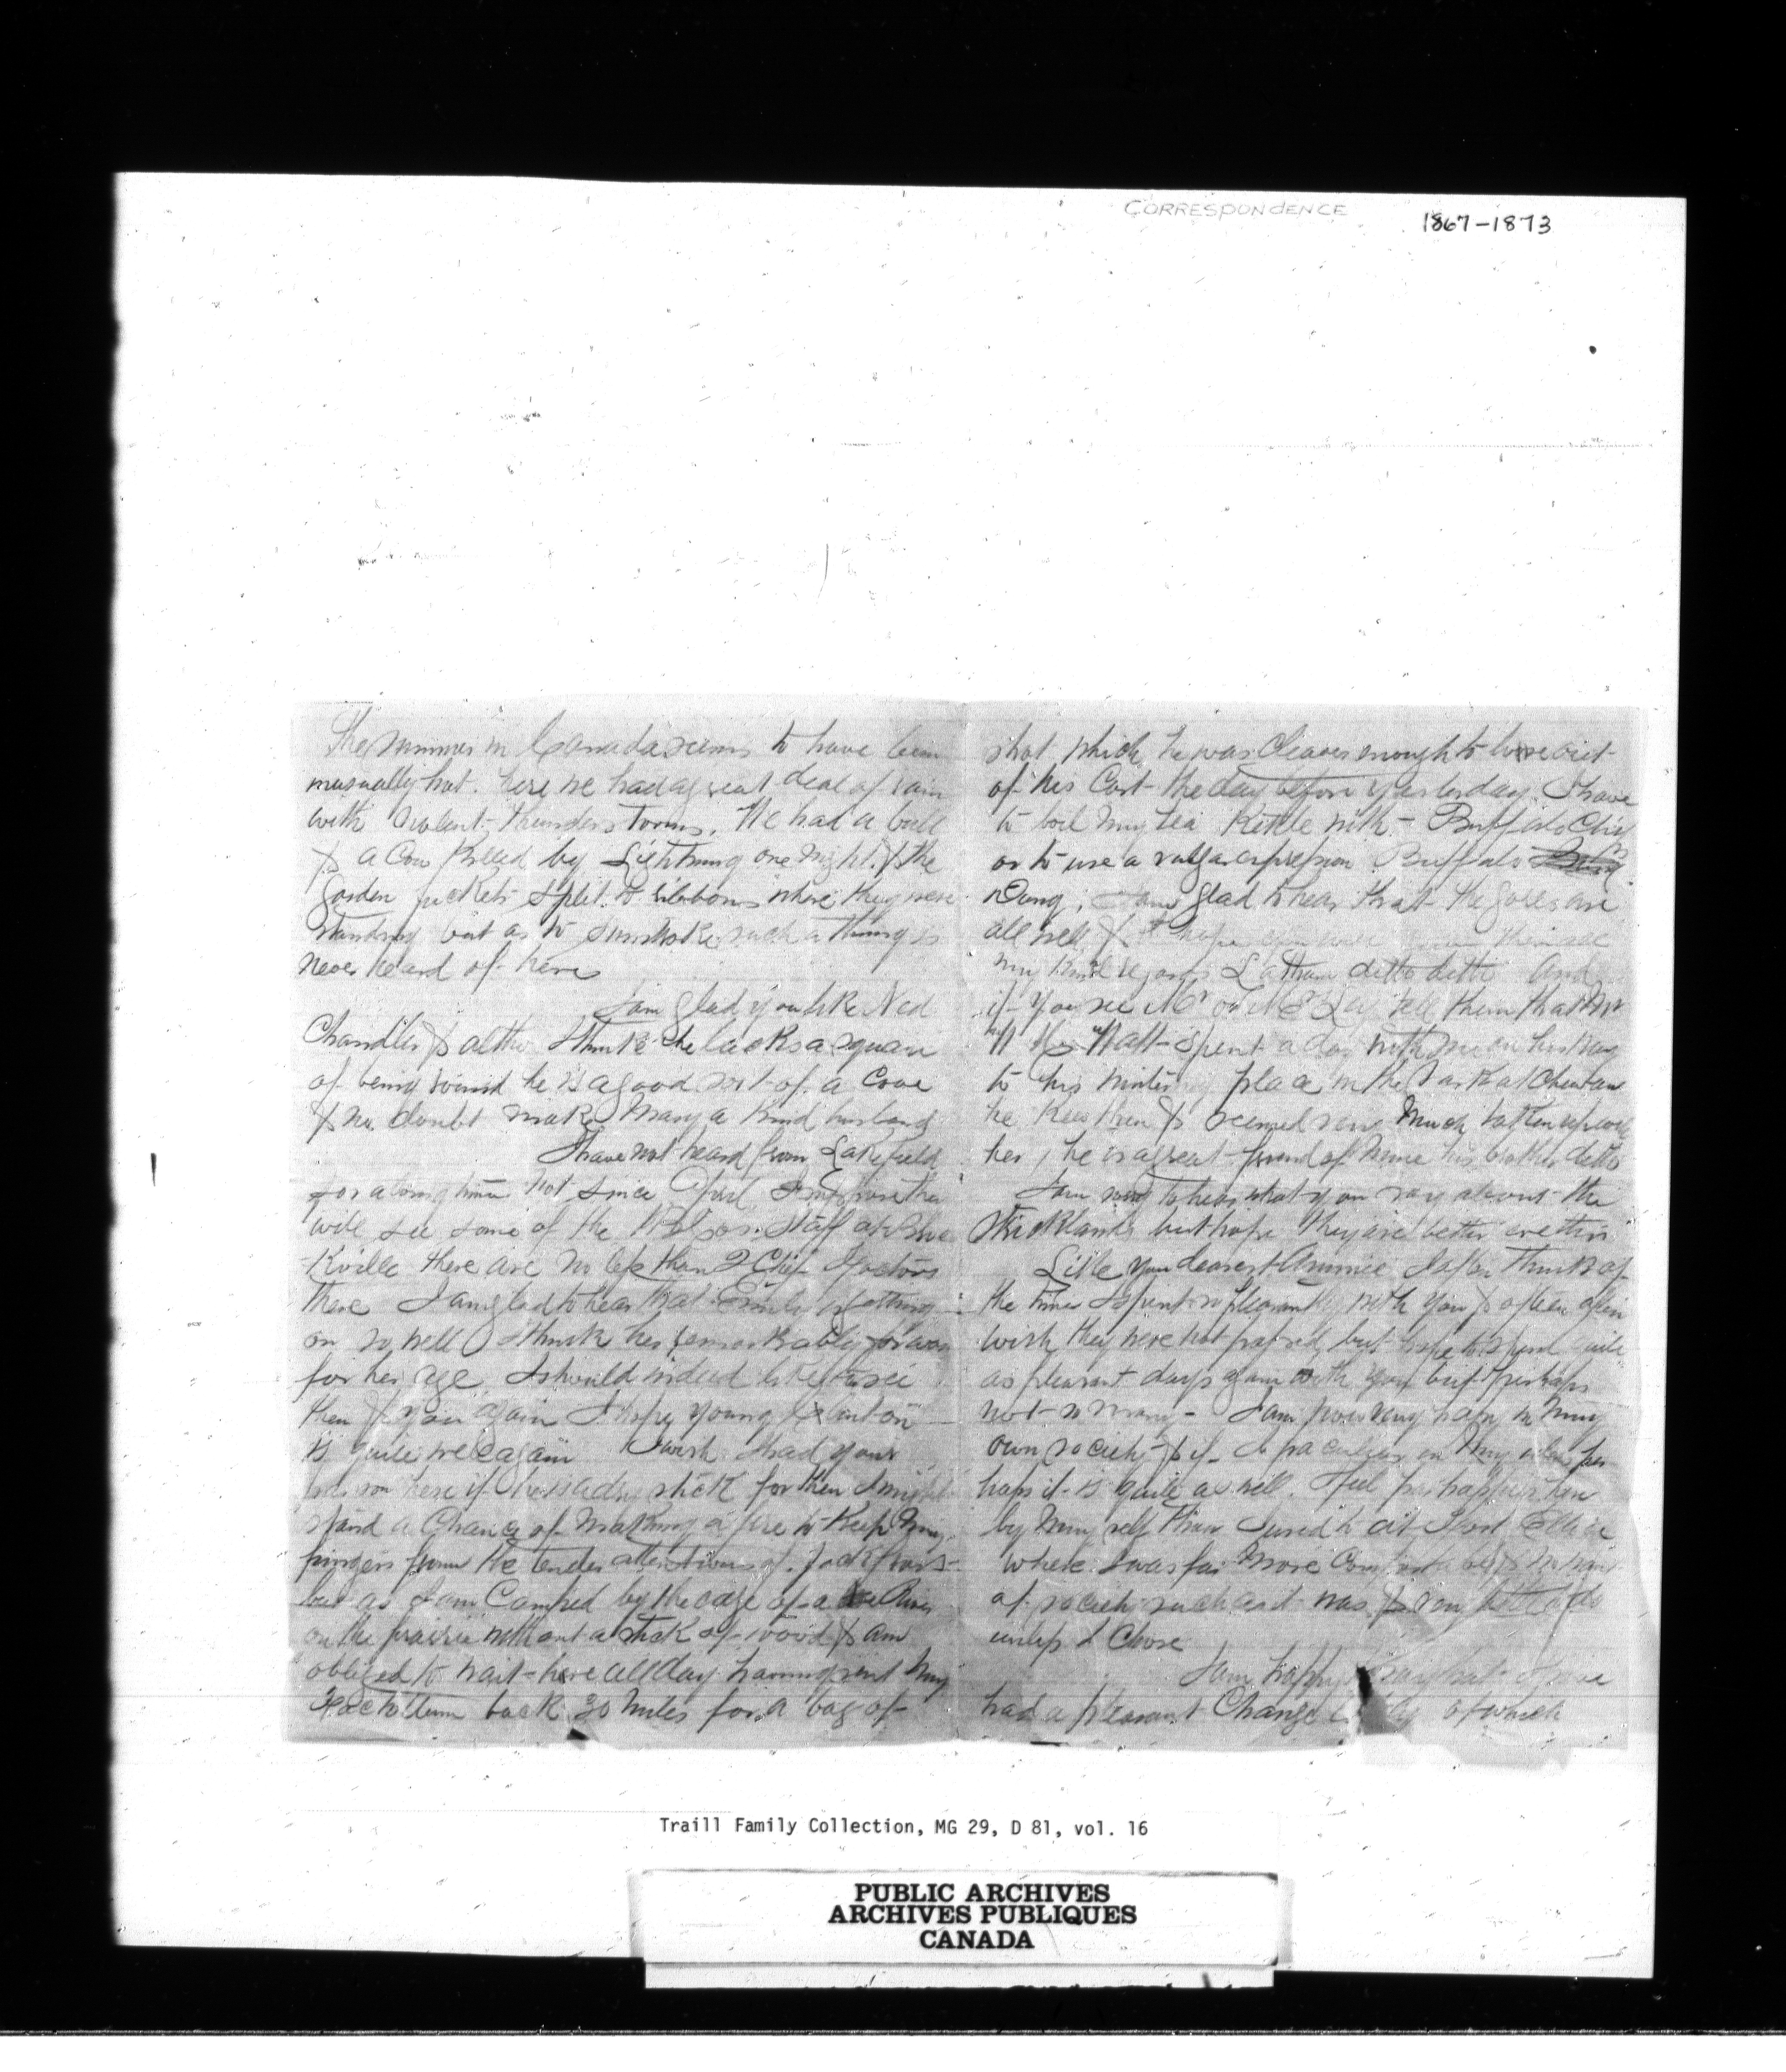 CORRESPONDENCE
1867-1873
The summer in Canada seems to have been
unusually hot. here we had a great deal of rain
with violent thunder storms. We had a bull
& a Cow killed by Lightning one night & the
Garden pickets split to ribbons where they were
standing but as to sunstroke such a thing is
never heard of here
I am glad you like Ned
Chandler & altho I think he lacks a square
of being round he is a good sort of a Cove
& no doubt make Mary a kind husband
I have not heard from Lakefield
for a long time not since April I suppose they
will see some of the
-kville there are no less than 2 Chief Factors
there I am glad to hear that Emily is getting
on so well I think her remarkably forward
for her age I should indeed like to see
them & you again I hope young Clinton
is quite well again I wish I had your
here if he is a dry stick for then I might
stand a Chance of making a fire to keep my
fingers from the tender attentions of Jack frost
but as I am Camped by the edge of a River
on the prairie without a stick of wood & am
obliged to wait here all day having sent my
back 30 miles for a bag of
shot which he was Cleaver enough to loose out
of his Cart the day before yesterday. I have
to boil my tea Kettle with - Buffalo Chip
or to use a vulgar expression Buffalo
Dung, I am glad to hear that the are
all well & I hope you will them all
my kind regards ditto ditto And
if you see Mr or Mrs tell them that Mr
W Watt spent a day with me on his way
to his wintering place in the Saskatchewan
he knew them & seemed very much taken up with
her, he is a great friend of mine his brother ditto
I am sorry to hear what you say about the
Stricklands but hope they are better ere this
Little you dearest Annie I often think of
the times I spent so pleasantly with you & often often
wish they were not passed, but hope to spend quite
as pleasant days again with you but perhaps
not so many - I am now very happy in my
own society & if I per
haps it is quite as well. I feel far happier here
by my self than I used to at Fort Ellice
where I was far more Comfortable & in
of society such as it was & very little to do
unless I Chose
I am happy to say that I have
had a pleasant Change of which
Traill Family Collection, MG 29, D 81, vol. 16
PUBLIC ARCHIVES
ARCHIVES PUBLIQUES
CANADA